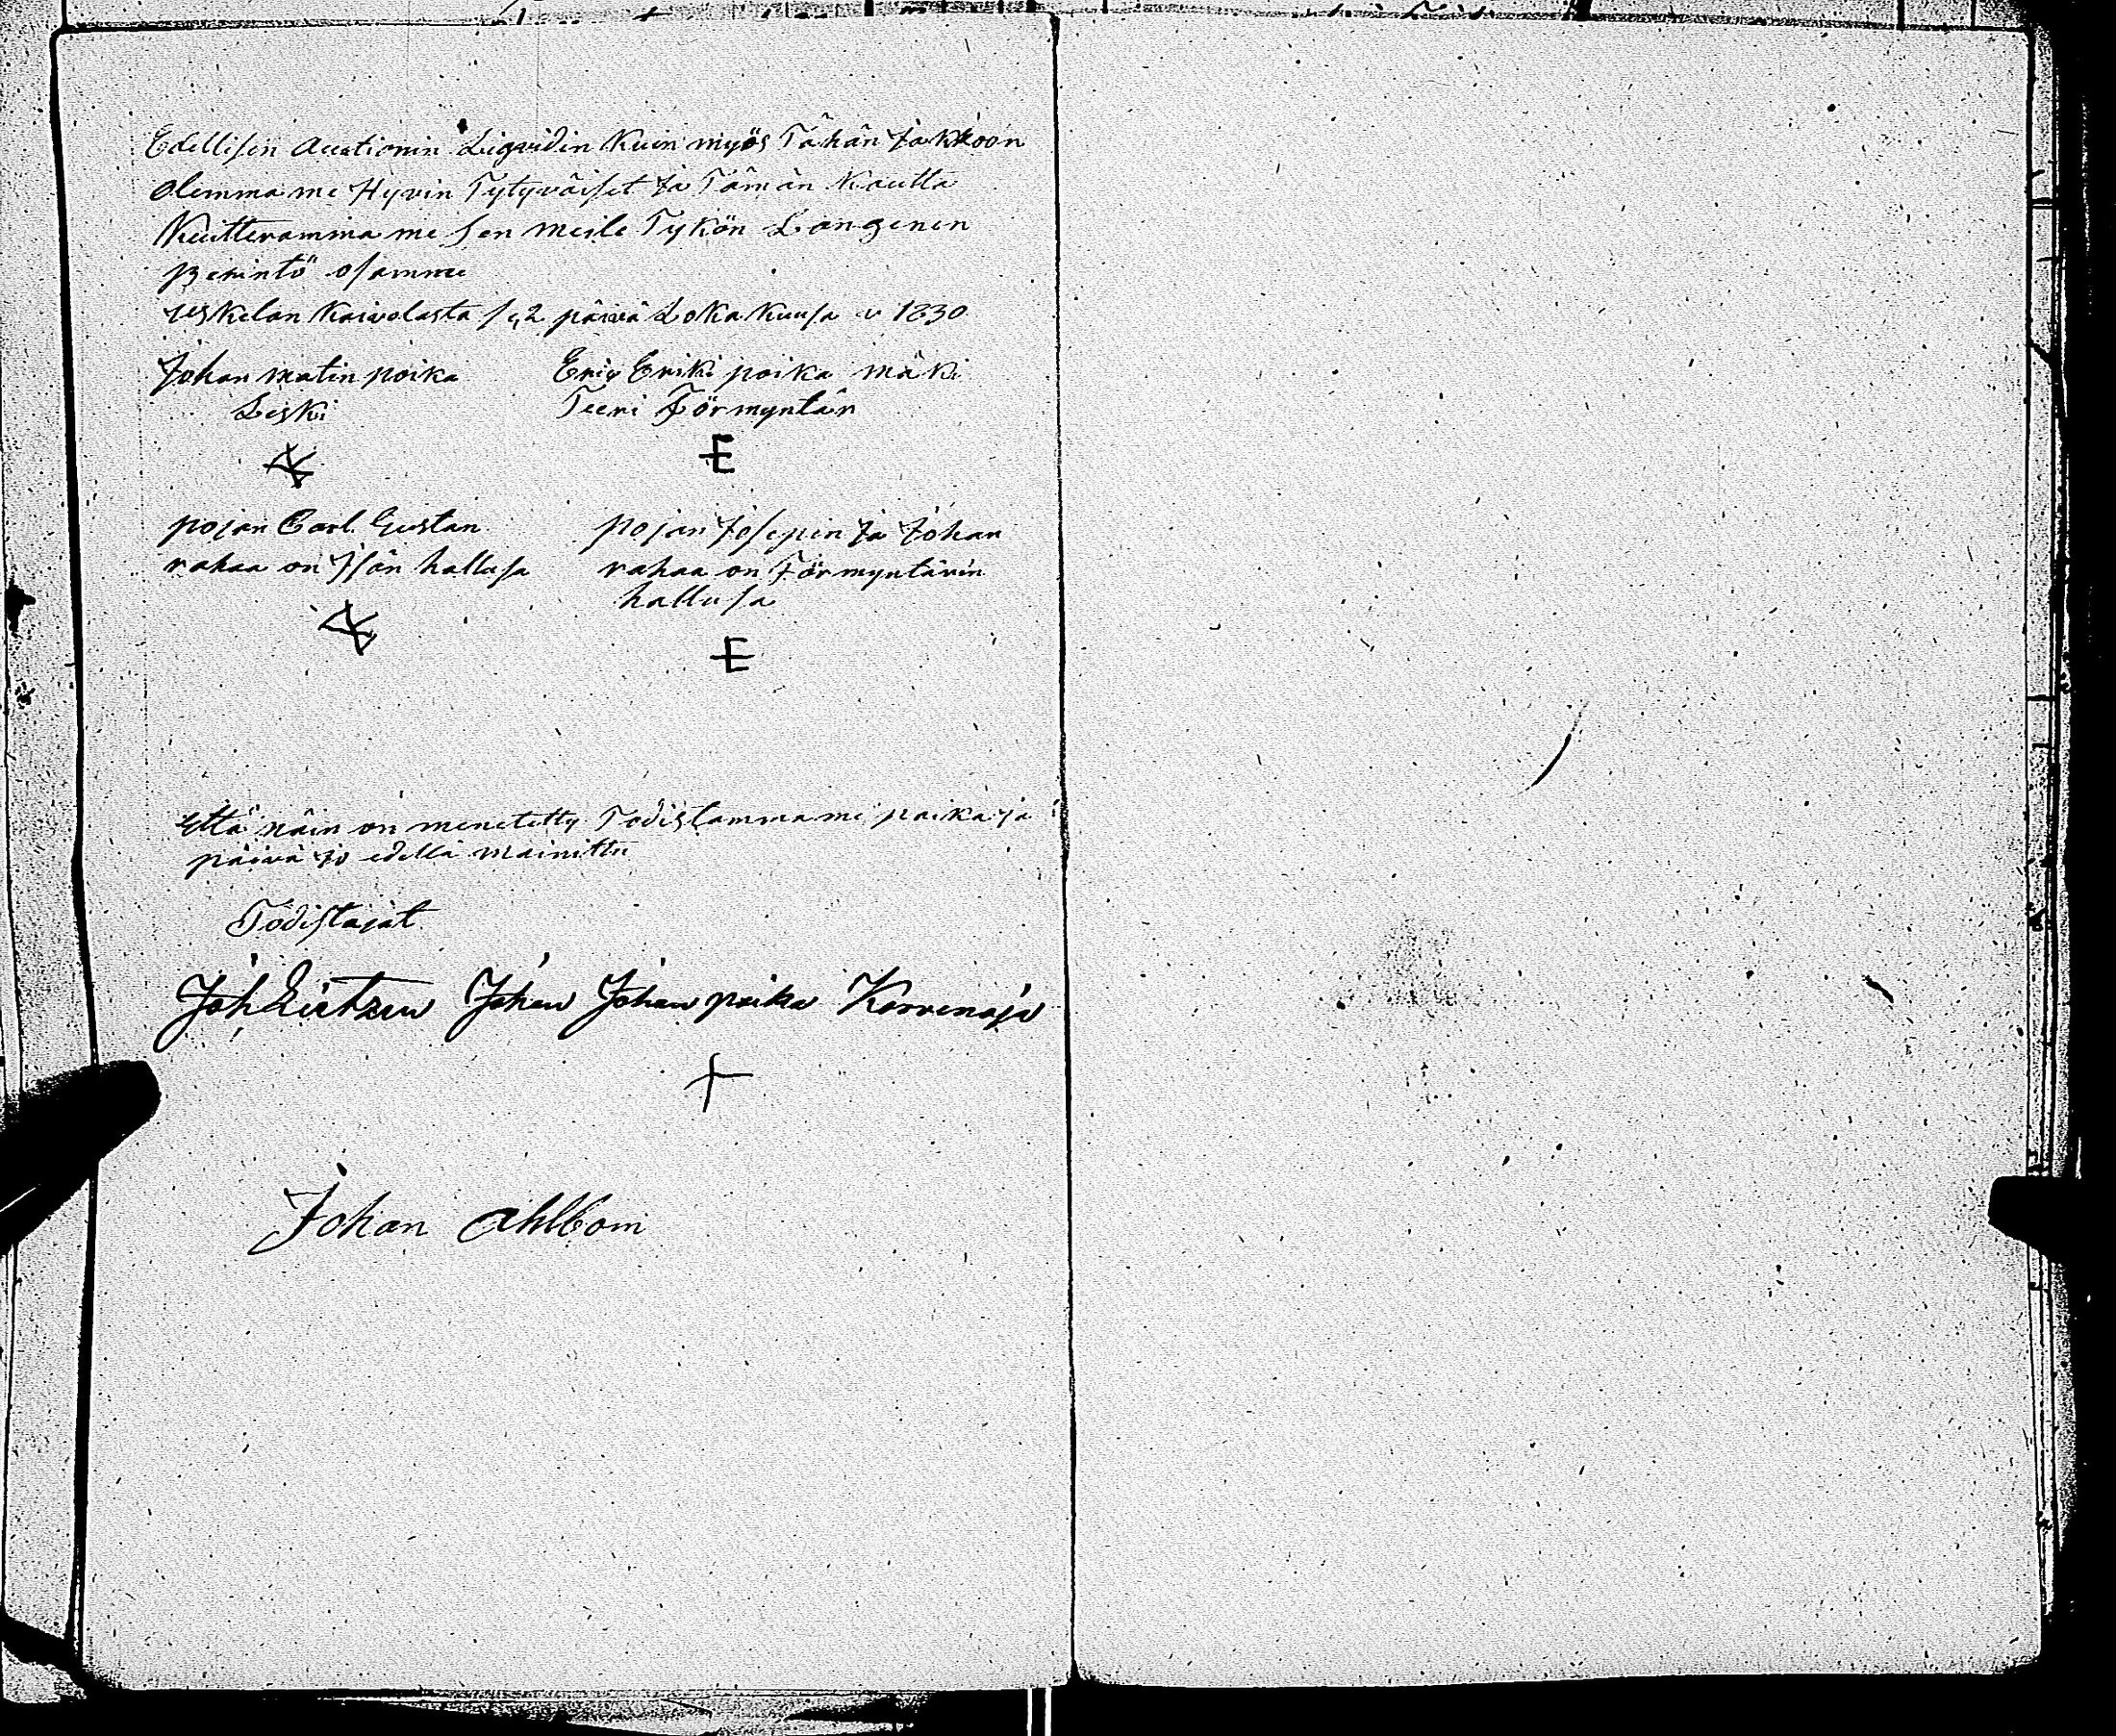 Edellisen Auctionin Liqvidin Kuin myös Tähän Jakkoon
Olemma me Hyvin Tytyväiset Ja Tämän Kautta
Kuitteramma me sen meile Tykön Langenen
Perintö osamme
uskelan Kaivolasta se 2 päivä Loka Kuusa v 1830
Johan matin poika
Leski
Eriq Eriki poika mäki
Teeri Förmyntär
E
pojan Carl Gustan
rahaa on Isän hallusa
pojan Josepin Ja Johan
rahaa on Förmyntärin
hallusa
E
Että näin on menetetty Todistamma me paika ja
päivä jo edellä mainittu
Todistajat
Joh Johan Johan poika Korvenoja
Johan Ahlbom